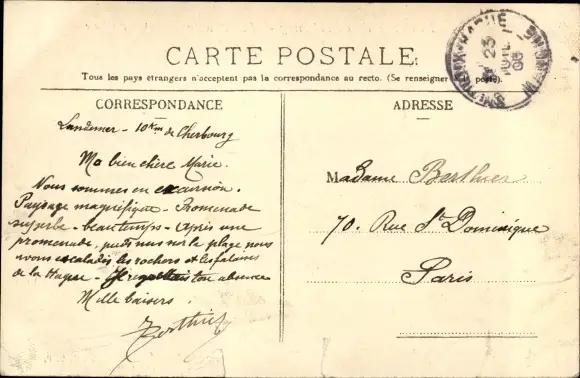 CARTE POSTALE
Tous les pays étrangers n'acceptent pas la correspondance au recto. (Se renseigner à la poste).
CORRESPONDANCE
Landemer - 10 Km de Cherbourg
Ma bien chère Marie.
Nous sommes en excursion.
Paysage magnifique - Promenade
superbe - beau temps - Après une
promenade, pieds nus sur la plage nous
avons escaladés les rochers et les falaises
de la Hague - Je regrettais ton absence
Mille baisers.
Berthier
ADRESSE
Madame Berthier
70. Rue St Dominique
Paris
HAGUE
23